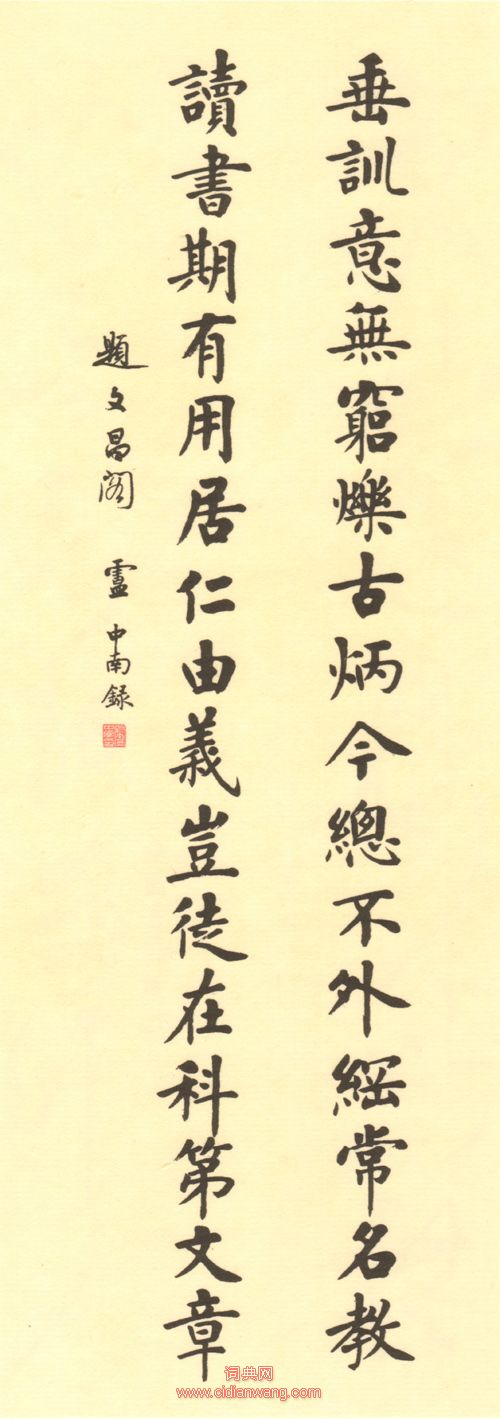 垂訓意無窮爍古炳今總不外綱常名教
讀書期有用居仁由義豈徒在科第文章
題文昌閣 盧中南録
词典网
www.cidianwang.com